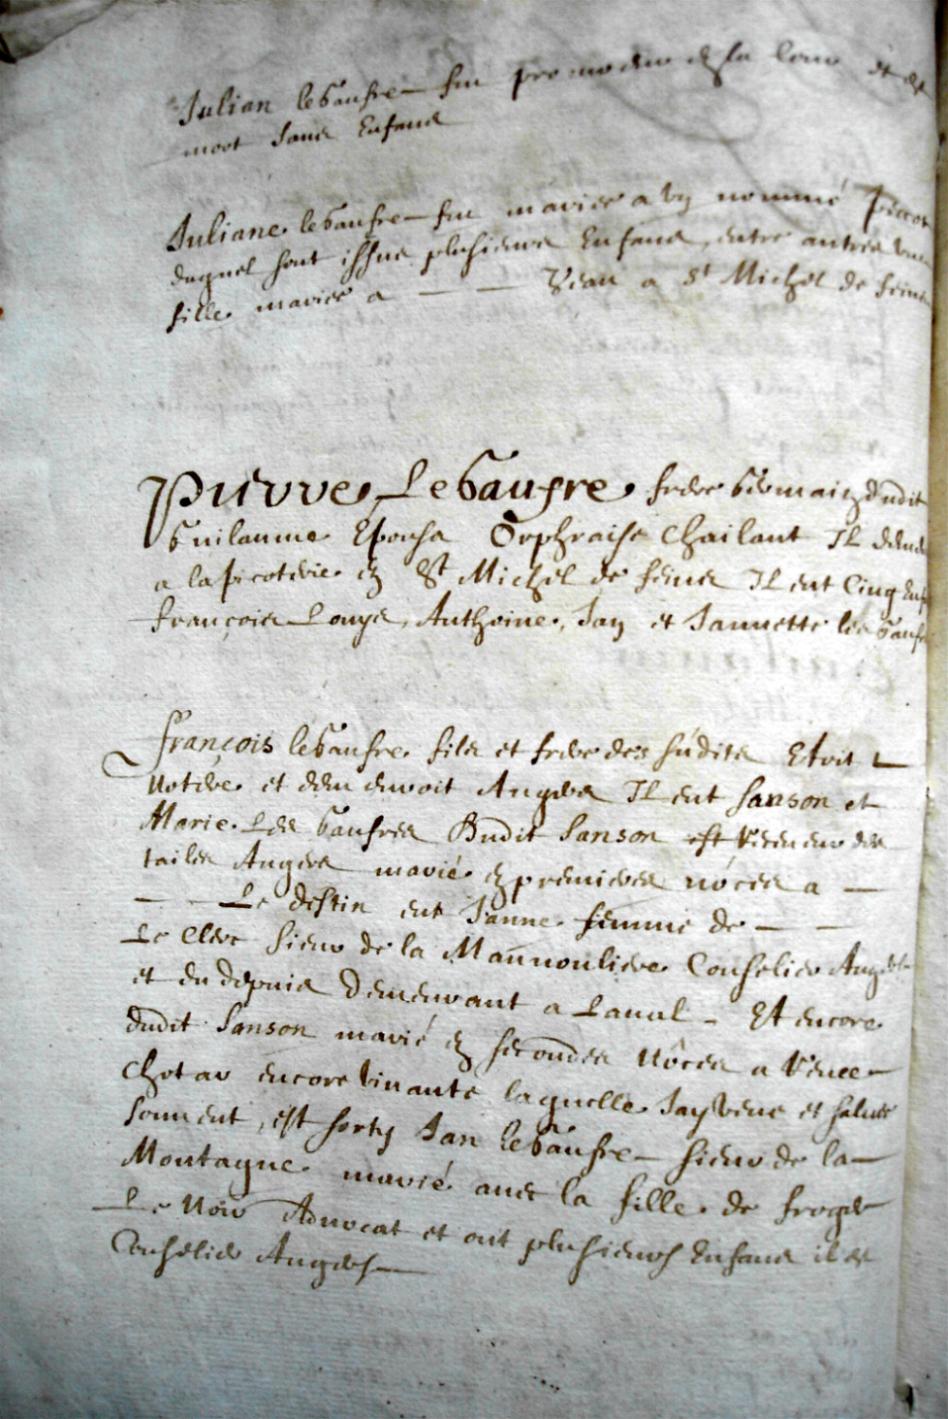 Julian leGaufre fut promoteur de la Cour et est
mort sans Enfans
Juliane leGaufre fut mariee a un nommé Pierre
duquel sont issus plusieurs Enfans, entre autres une
fille mariee a — — Jean a St Michel de feins
Pierre LeGaufre frere Germain dudit
Guilaume Epousa Orphraise Chailant Il demeu
a la picoterie en St Michel de feins Il eut Cinq Enf
François Louys, Anthoine, Jan et Jannette les Gaufr
François leGaufre fils et frere des súdits Etoit
Notere et demeuroit Angers Il eut Sanson et
Marie Les Gaufres Dudit Sanson est Receveur des
tailes Angers marié en premieres nóces a —
— — Le destin eut Janne femme de — —
Le Clerc sieur de la Mannouliere Conselier Angers
et du depuis Demeurant a Laual - Et encore
dudit Sanson marié en secondes Nôces a Renee
Chotar encore viuante laquelle Jay veue et salue
souuent, est sorty Jan leGaufre sieur de la
Montagne marié auec la fille de froger
Le Noir Aduocat et ont plusieurs Enfans il est
Conselier Angers